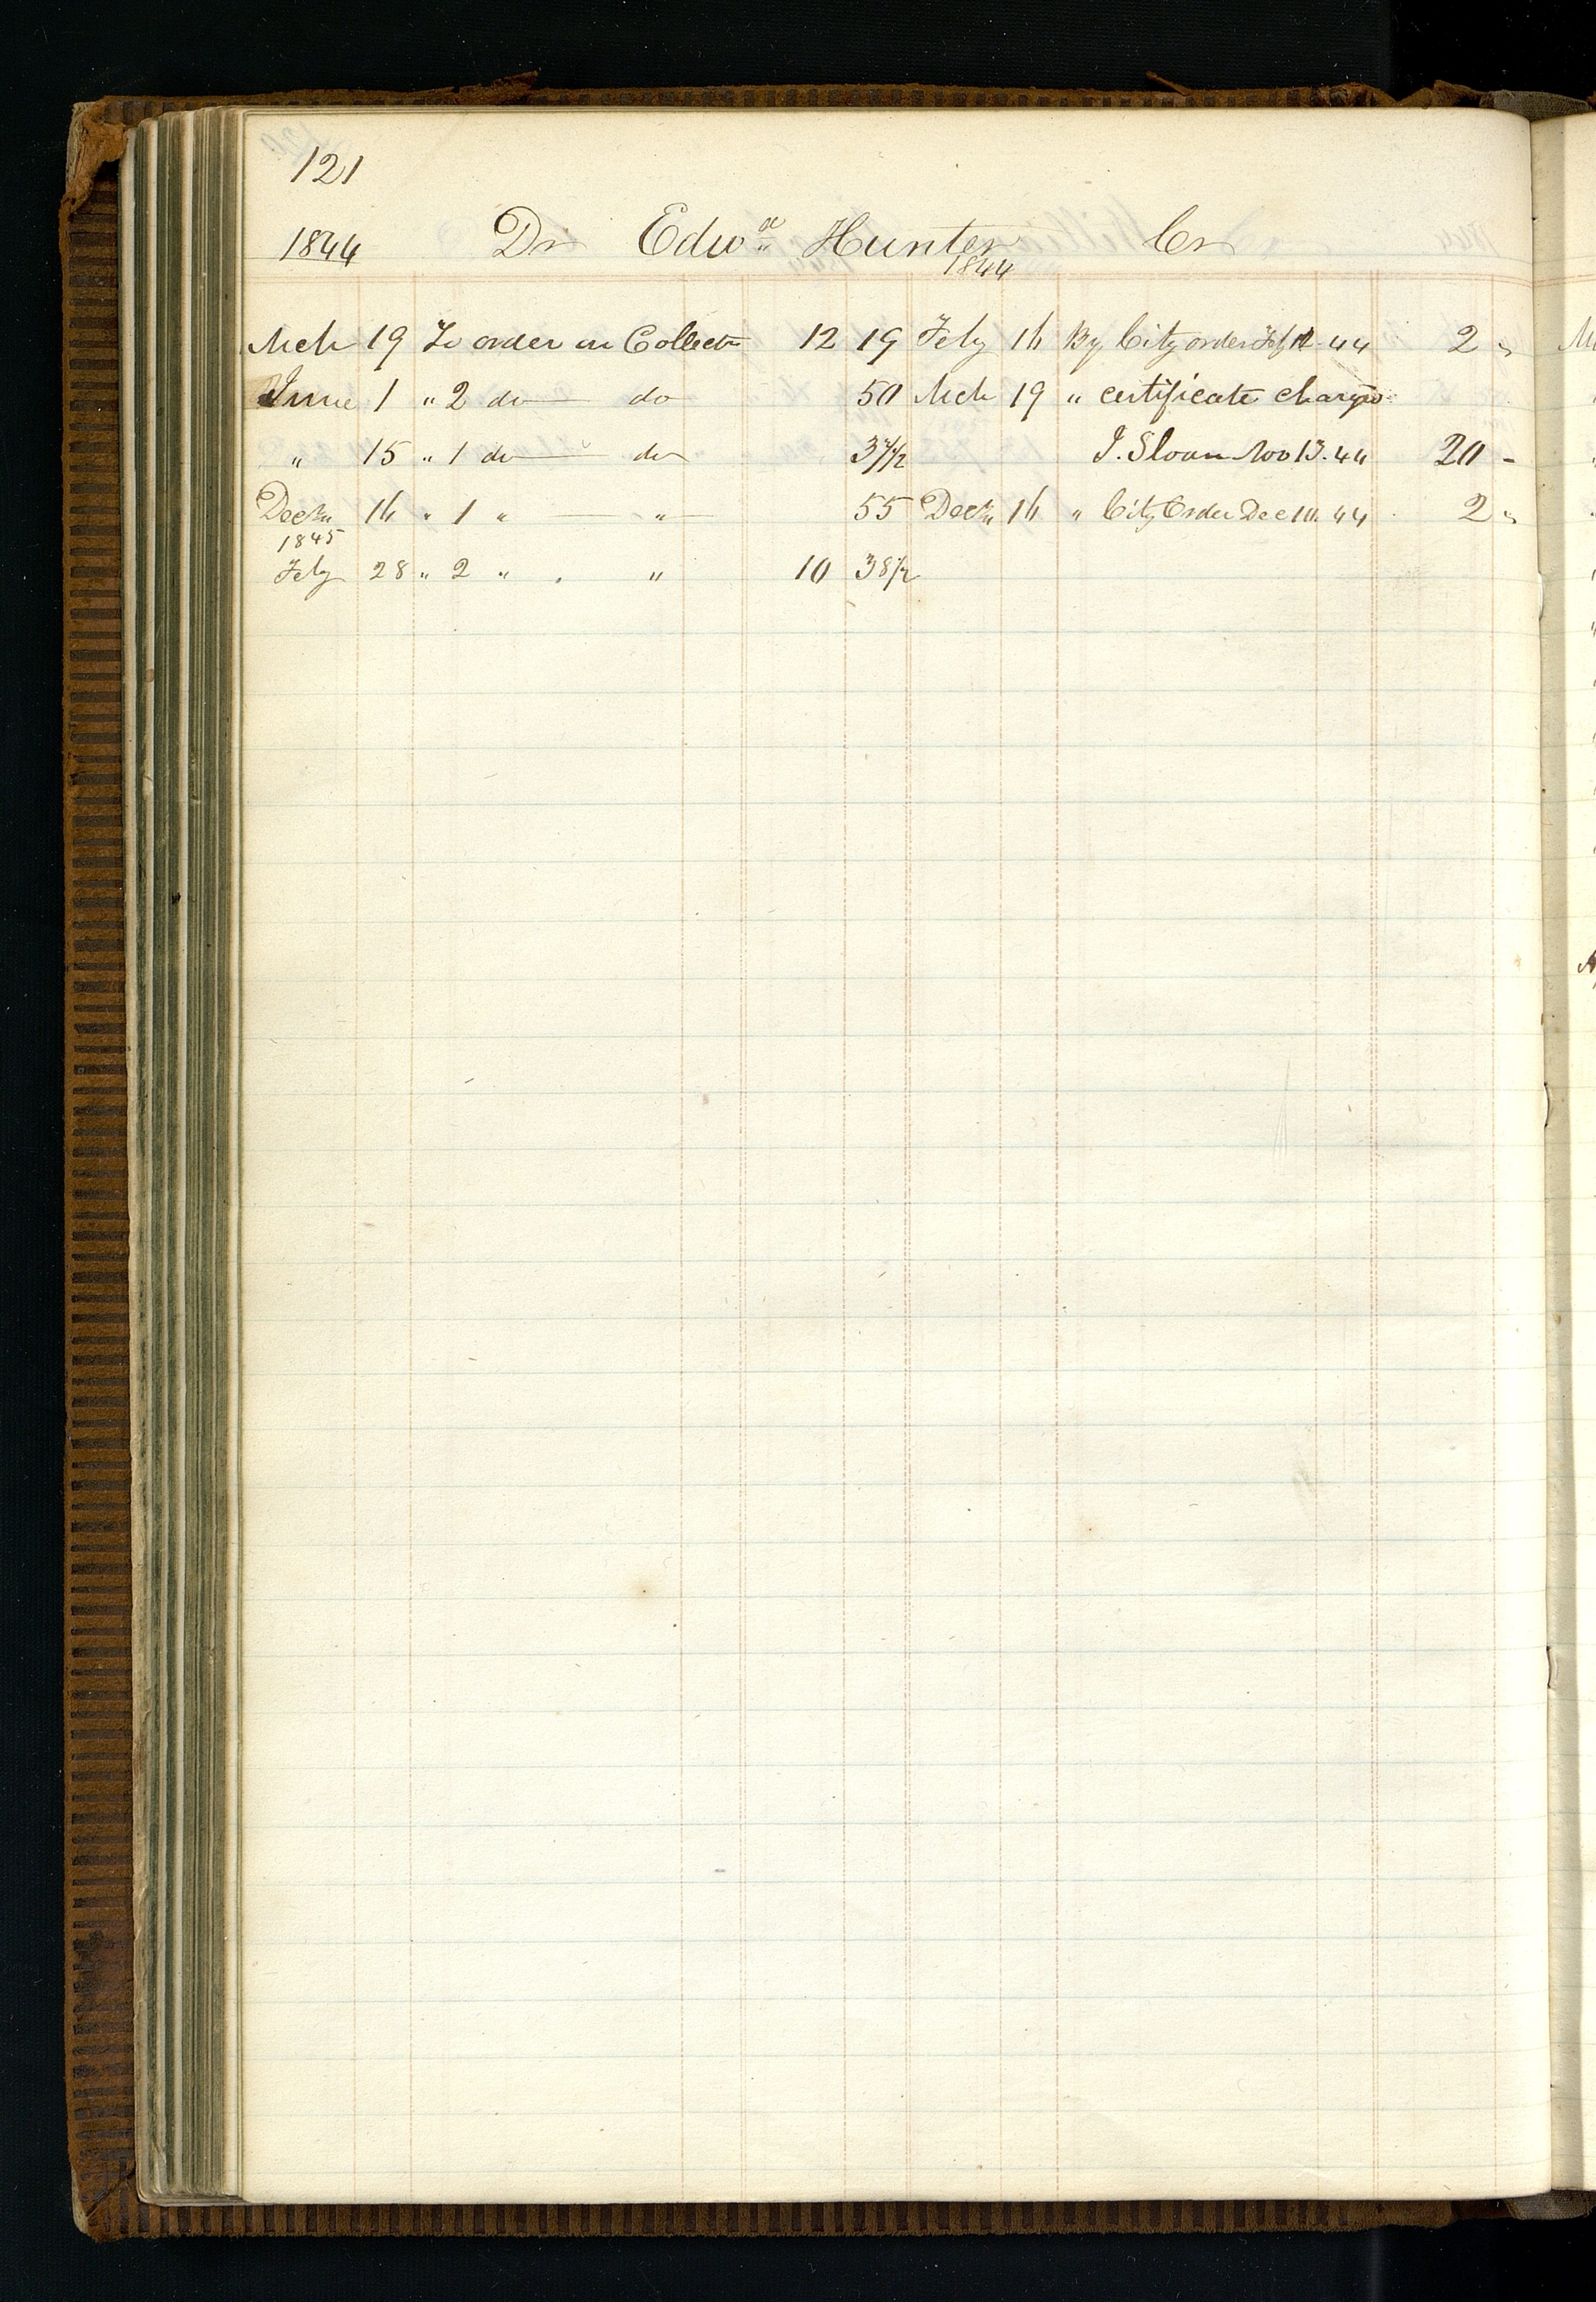 121
1844 Dr Edwd Hunter Cr
1844
Mch 19 To order on Collectr 12 19 Feby 16 By City order Feb 12. 44 2 "
June 1 " 2 do do 50 Mch 19 " certificate charge
" 15 " 1 do do 37½ J. Sloan Nov 13. 44 20 -
Decm 16 " 1 " " 55 Decm 16 " City Order Dec 10. 44 2 "
1845
Feby 28 " 2 " " 10 38½